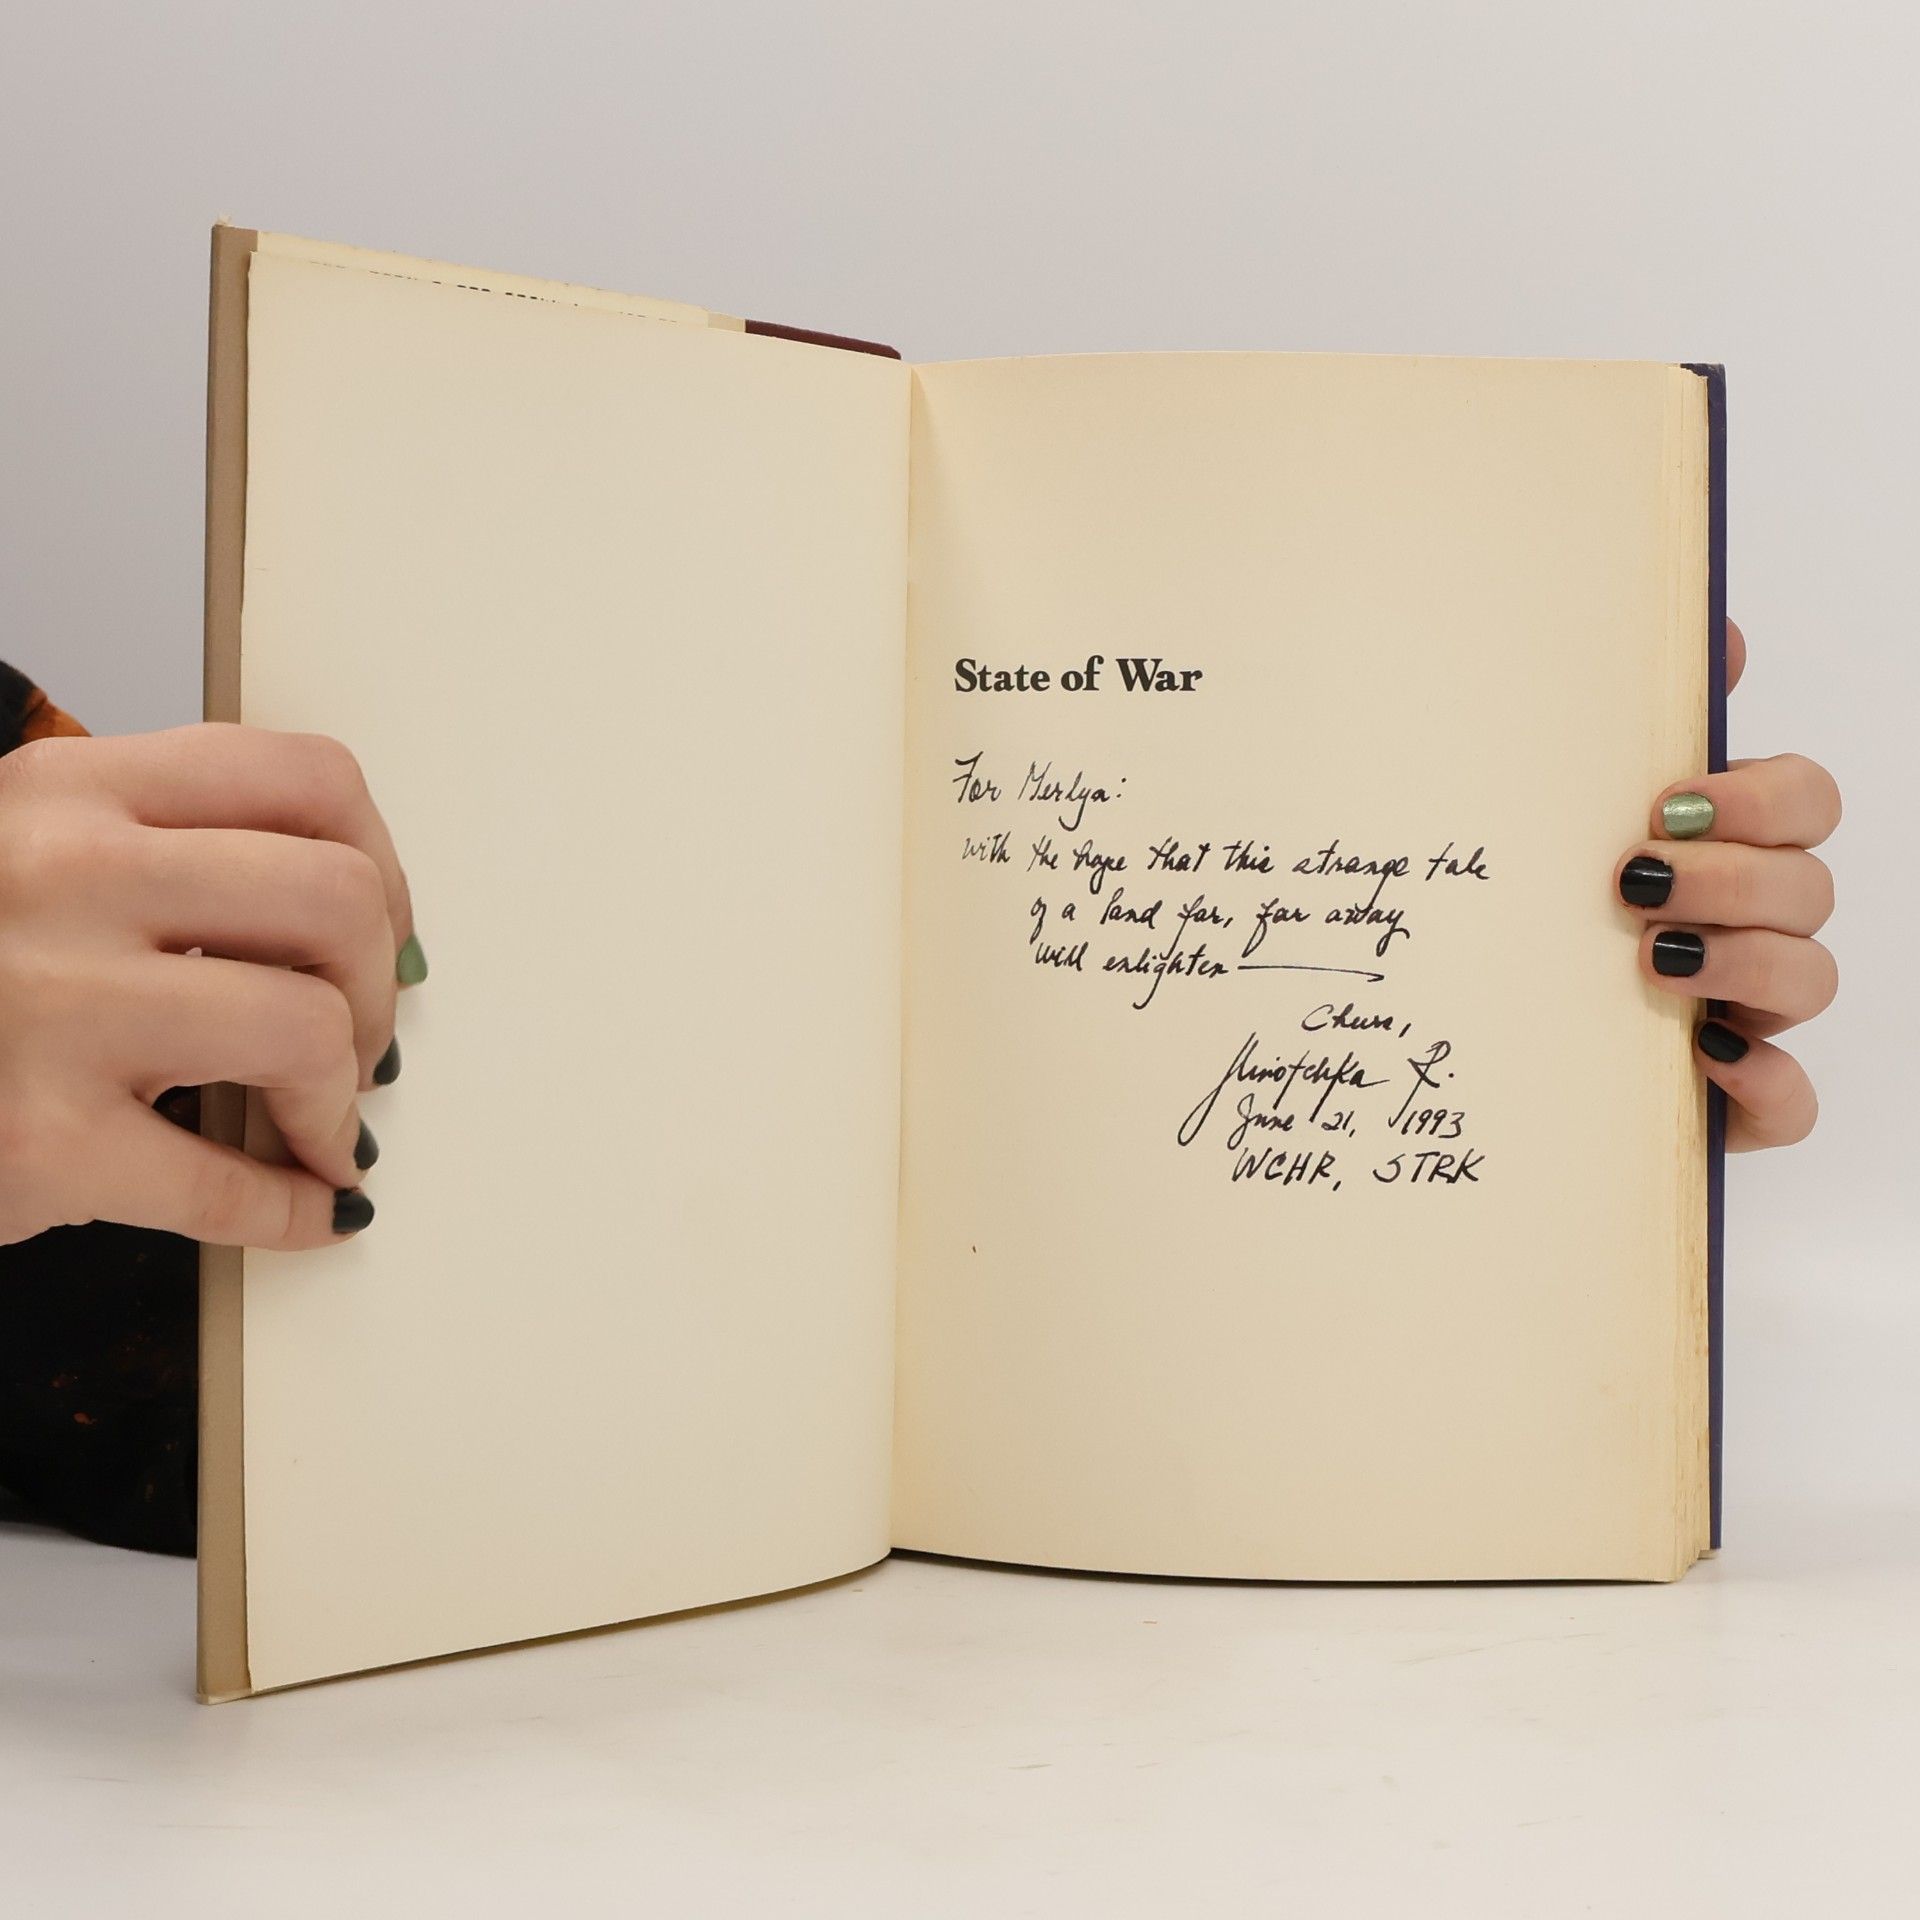 State of War
For Merlyn:
with the hope that this strange tale
of a land far, far away
will enlighten —
Cheers,
Ninotchka R.
June 21, 1993
WCHR, STRK